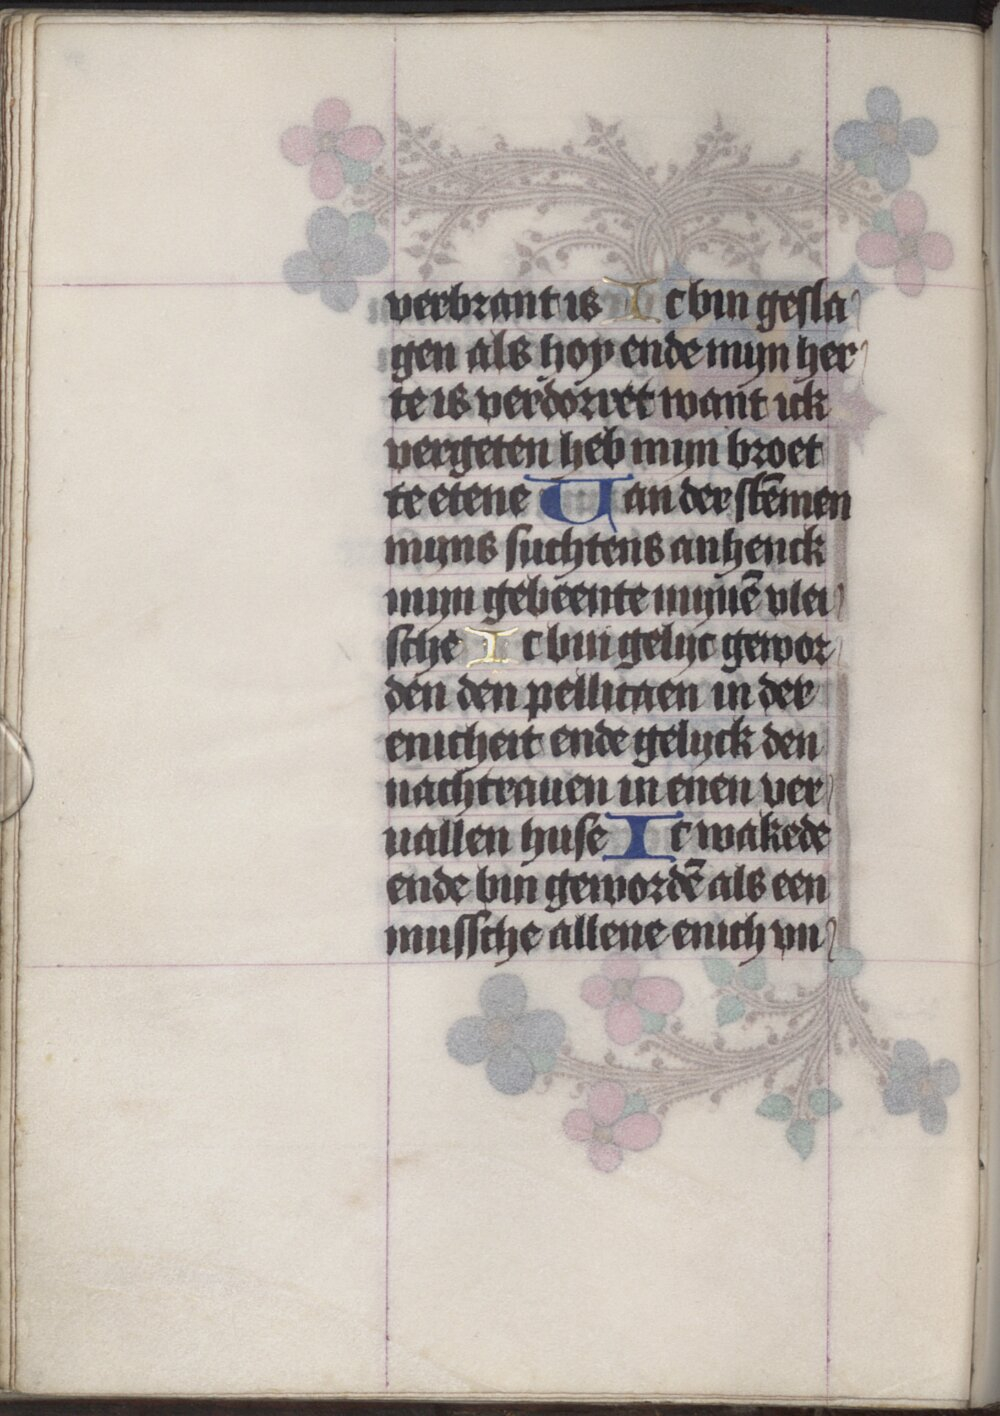 verbrant is Ic bin gesla
gen als hoy ende mijn her
te is verdorret want ick
vergeten heb mijn broet
te etene Uan der stēmen
mijns suchtens anhenck
mijn gebeente mijnē vlei
sche Ic bin gelijc gewor
den den pellicaen in der
enicheit ende gelijck den
nachtrauen in enen ver
uallen huse Ic wakede
ende bin gewordē als een
mussche allene enich vn